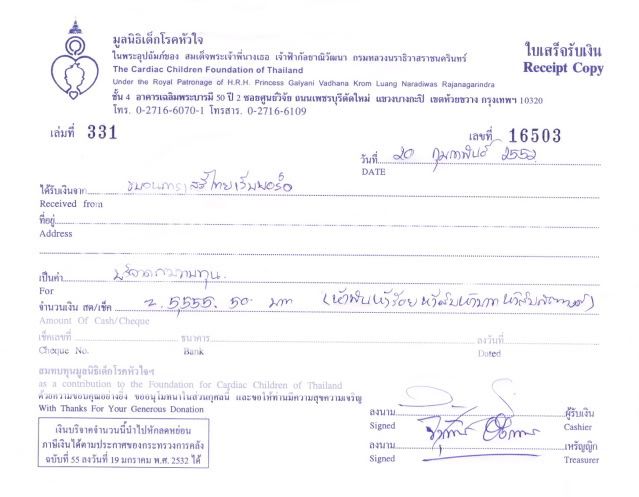 มูลนิธิเด็กโรคหัวใจ
ในพระอุปถัมภ์ของ สมเด็จพระเจ้าพี่นางเธอ เจ้าฟ้ากัลยาณิวัฒนา กรมหลวงนราธิวาสราชนครินทร์
The Cardiac Children Foundation of Thailand
Under the Royal Patronage of H.R.H. Princess Galyani Vadhana Krom Luang Naradiwas Rajanagarindra
ชั้น 4 อาคารเฉลิมพระบารมี 50 ปี 2 ซอยศูนย์วิจัย ถนนเพชรบุรีตัดใหม่ แขวงบางกะปิ เขตห้วยขวาง กรุงเทพฯ 10320
โทร. 0-2716-6070-1 โทรสาร. 0-2716-6109
ใบเสร็จรับเงิน
Receipt Copy
เล่มที่ 331
เลขที่ 16503
วันที่ 20 กุมภาพันธ์ 2552
DATE
ได้รับเงินจาก
Received from
ที่อยู่
Address
เป็นค่า บริจาคสมทบทุน
For
จำนวนเงิน สด/เช็ค 5,555.50 บาท (ห้าพันห้าร้อยห้าสิบห้าบาทห้าสิบสตางค์)
Amount Of Cash/Cheque
เช็คเลขที่ ธนาคาร ลงวันที่
Cheque No. Bank Dated
สมทบทุนมูลนิธิเด็กโรคหัวใจฯ
as a contribution to the Foundation for Cardiac Children of Thailand
ด้วยความขอบคุณอย่างยิ่ง ขออนุโมทนาในส่วนกุศลนี้ และขอให้ท่านมีความสุขความเจริญ
With Thanks For Your Generous Donation
ลงนาม ผู้รับเงิน
Signed Cashier
ลงนาม เหรัญญิก
Signed Treasurer
เงินบริจาคจำนวนนี้นำไปหักลดหย่อน
ภาษีเงินได้ตามประกาศของกระทรวงการคลัง
ฉบับที่ 55 ลงวันที่ 19 มกราคม พ.ศ. 2532 ได้